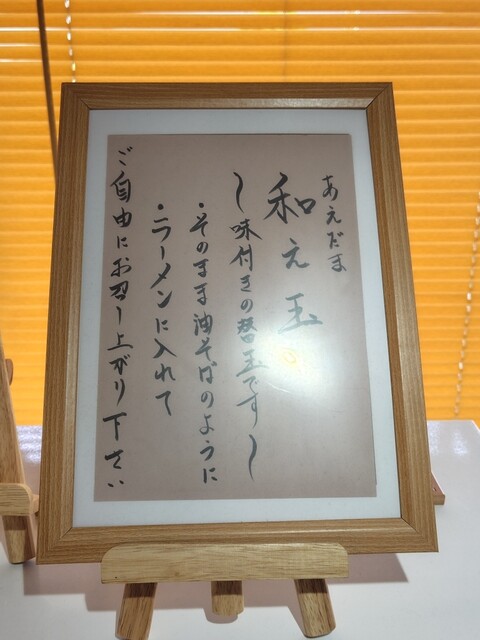 あえだま
和え玉
〜味付きの替玉です〜
・そのまま油そばのように
・ラーメンに入れて
ご自由にお召し上がり下さい